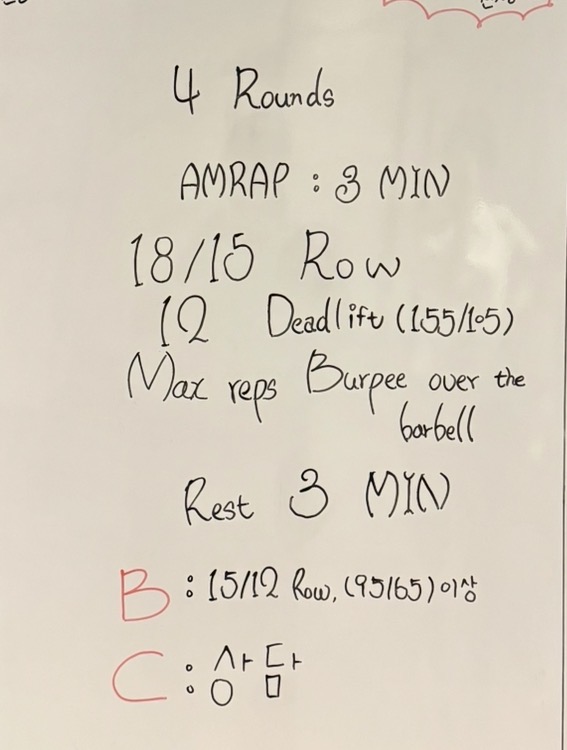 4 Rounds
AMRAP : 3 MIN
18/15 Row
12 Deadlift (155/105)
Max reps Burpee over the
barbell
Rest 3 MIN
B : 15/12 Row, (95/65) 이상
C : 상담